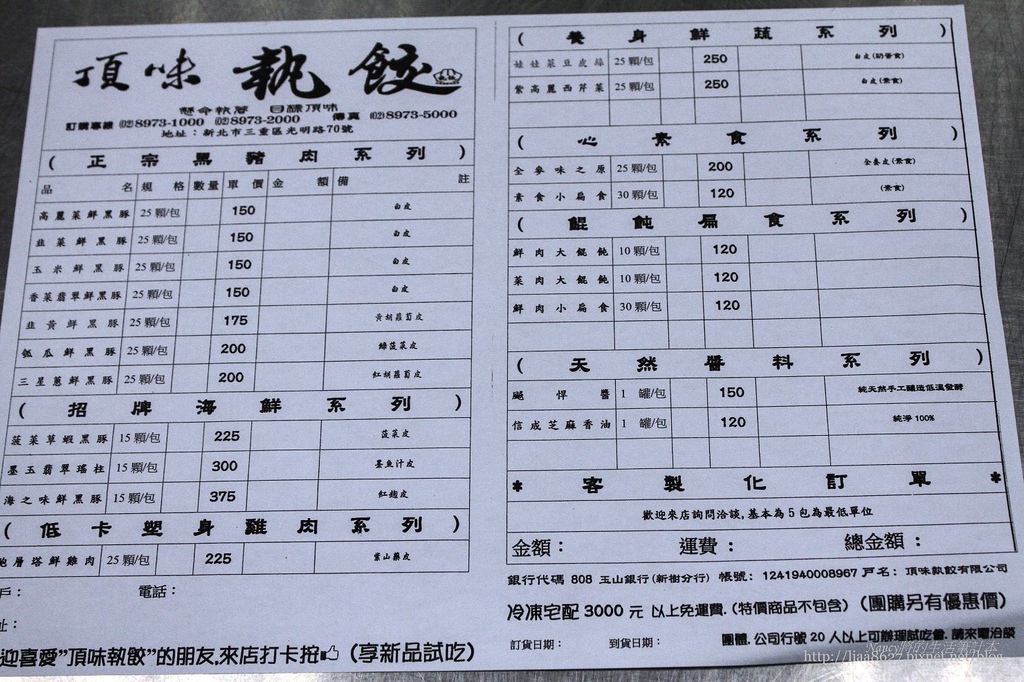 頂味執餃
懸命執著 目標頂味
訂購專線 (02)8973-1000 (02)8973-2000 傳真 (02)8973-5000
地址：新北市三重區光明路70號
( 正宗黑豬肉系列 )
品名 規格 數量 單價 金額 備註
高麗菜鮮黑豚 25顆/包 150 白皮
韭菜鮮黑豚 25顆/包 150 白皮
玉米鮮黑豚 25顆/包 150 白皮
香菜翡翠鮮黑豚 25顆/包 150 白皮
韭黃鮮黑豚 25顆/包 175 黃胡蘿蔔皮
瓠瓜鮮黑豚 25顆/包 200 綠菠菜皮
三星蔥鮮黑豚 25顆/包 200 紅胡蘿蔔皮
( 招牌海鮮系列 )
菠菜草蝦黑豚 15顆/包 225 菠菜皮
墨玉翡翠瑤柱 15顆/包 300 墨魚汁皮
海之味鮮黑豚 15顆/包 375 紅麴皮
( 低卡塑身雞肉系列 )
層塔鮮雞肉 25顆/包 225 紫山藥皮
戶： 電話：
址：
迎喜愛"頂味執餃"的朋友,來店打卡按 (享新品試吃)
( 養身鮮蔬系列 )
娃娃菜豆皮絲 25顆/包 250 白皮(奶香食)
紫高麗西芹菜 25顆/包 250 白皮(素食)
( 心素食系列 )
全麥味之原 25顆/包 200 全麥皮(素食)
素食小扁食 30顆/包 120 (素食)
( 餛飩扁食系列 )
鮮肉大餛飩 10顆/包 120
菜肉大餛飩 10顆/包 120
鮮肉小扁食 30顆/包 120
( 天然醬料系列 )
飈悍醬 1 罐/包 150 純天然手工釀造低溫發酵
信成芝麻香油 1 罐/包 120 純淨100%
* 客製化訂單 *
歡迎來店詢問洽談,基本為5包為最低單位
金額： 運費： 總金額：
銀行代碼 808 玉山銀行(新樹分行) 帳號：1241940008967 戶名：頂味執餃有限公司
冷凍宅配3000元 以上免運費.(特價商品不包含) (團購另有優惠價)
訂貨日期： 到貨日期： 團體.公司行號20人以上可辦理試吃會.請來電洽談
http://liaa8627.pixnet.net/blog